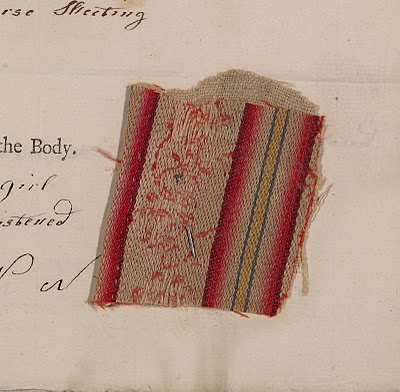 rse Sheeting
the Body.
girl
istened
N